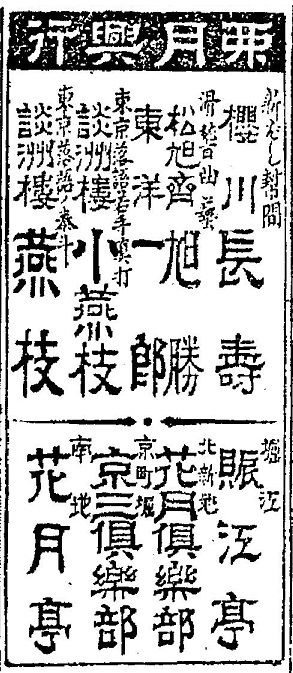 來月興行
新ばし幇間
櫻川長壽
滑稽百曲藝
松旭齊旭勝
東洋一郎
東京落語若手眞打
談洲樓小燕枝
東京落語ノ泰斗
談洲樓燕枝
堀江
賑江亭
北新地
花月倶樂部
京町堀
京三倶樂部
南地
花月亭